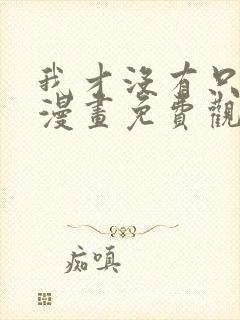 我才沒有只
漫畫免費觀
痴嗔